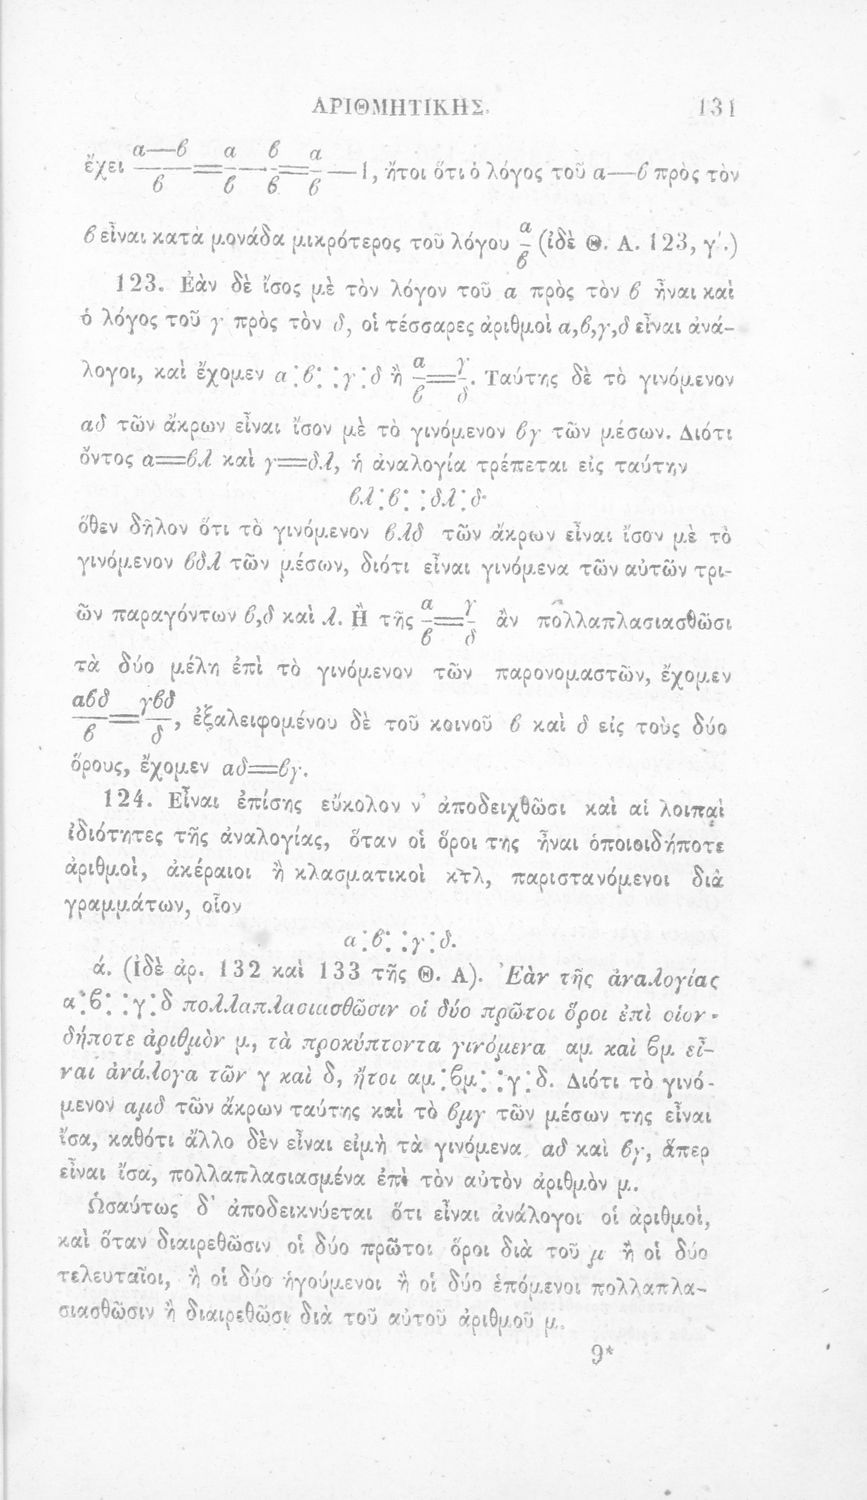 ΑΡΙΘΜΗΤΙΚΗΣ. 131
ἔχει α—ϐ/ϐ = α/ϐ - ϐ/ϐ = α/ϐ — 1, ἤτοι ὅτι ὁ λόγος τοῦ α—ϐ πρὸς τὸν
ϐ εἶναι κατὰ μονάδα μικρότερος τοῦ λόγου α/ϐ (ἰδὲ Θ. Α. 123, γ΄.)
123. Ἐὰν δὲ ἴσος μὲ τὸν λόγον τοῦ α πρὸς τὸν ϐ ἦναι καὶ
ὁ λόγος τοῦ γ πρὸς τὸν δ, οἱ τέσσαρες ἀριθμοὶ α,ϐ,γ,δ εἶναι ἀνά-
λογοι, καὶ ἔχομεν α:ϐ::γ:δ ἢ α/ϐ=γ/δ. Ταύτης δὲ τὸ γινόμενον
αδ τῶν ἄκρων εἶναι ἴσον μὲ τὸ γινόμενον ϐγ τῶν μέσων. Διότι
ὄντος α=ϐλ καὶ γ=δλ, ἡ ἀναλογία τρέπεται εἰς ταύτην
ϐλ:ϐ::δλ:δ·
ὅθεν δῆλον ὅτι τὸ γινόμενον ϐλδ τῶν ἄκρων εἶναι ἴσον μὲ τὸ
γινόμενον ϐδλ τῶν μέσων, διότι εἶναι γινόμενα τῶν αὐτῶν τρι-
ῶν παραγόντων ϐ,δ καὶ λ. Ἢ τῆς α/ϐ=γ/δ ἂν πολλαπλασιασθῶσι
τὰ δύο μέλη ἐπὶ τὸ γινόμενον τῶν παρονομαστῶν, ἔχομεν
αϐδ/ϐ=γϐδ/δ, ἐξαλειφομένου δὲ τοῦ κοινοῦ ϐ καὶ δ εἰς τοὺς δύο
ὅρους, ἔχομεν αδ=ϐγ.
124. Εἶναι ἐπίσης εὔκολον ν᾽ ἀποδειχθῶσι καὶ αἱ λοιπαὶ
ἰδιότητες τῆς ἀναλογίας, ὅταν οἱ ὅροι της ἦναι ὁποιοιδήποτε
ἀριθμοὶ, ἀκέραιοι ἢ κλασματικοὶ κτλ, παριστανόμενοι διὰ
γραμμάτων, οἷον
α:ϐ::γ:δ.
ά. (ἰδὲ ἀρ. 132 καὶ 133 τῆς Θ. Α). Ἐὰν τῆς ἀναλογίας
α:ϐ::γ:δ πολλαπλασιασθῶσιν οἱ δύο πρῶτοι ὅροι ἐπὶ οἱον-
δήποτε ἀριθμὸν μ, τὰ προκύπτοντα γινόμενα αμ καὶ ϐμ εἶ-
ναι ἀνάλογα τῶν γ καὶ δ, ἤτοι αμ:ϐμ::γ:δ. Διότι τὸ γινό-
μενον αμδ τῶν ἄκρων ταύτης καὶ τὸ ϐμγ τῶν μέσων της εἶναι
ἴσα, καθότι ἄλλο δὲν εἶναι εἰμὴ τὰ γινόμενα αδ καὶ ϐγ, ἅπερ
εἶναι ἴσα, πολλαπλασιασμένα ἐπὶ τὸν αὐτὸν ἀριθμὸν μ.
Ὡσαύτως δ᾽ ἀποδεικνύεται ὅτι εἶναι ἀνάλογοι οἱ ἀριθμοὶ,
καὶ ὅταν διαιρεθῶσιν οἱ δύο πρῶτοι ὅροι διὰ τοῦ μ ἢ οἱ δύο
τελευταῖοι, ἢ οἱ δύο ἡγούμενοι ἢ οἱ δύο ἑπόμενοι πολλαπλα-
σιασθῶσιν ἢ διαιρεθῶσι διὰ τοῦ αὐτοῦ ἀριθμοῦ μ.
9*